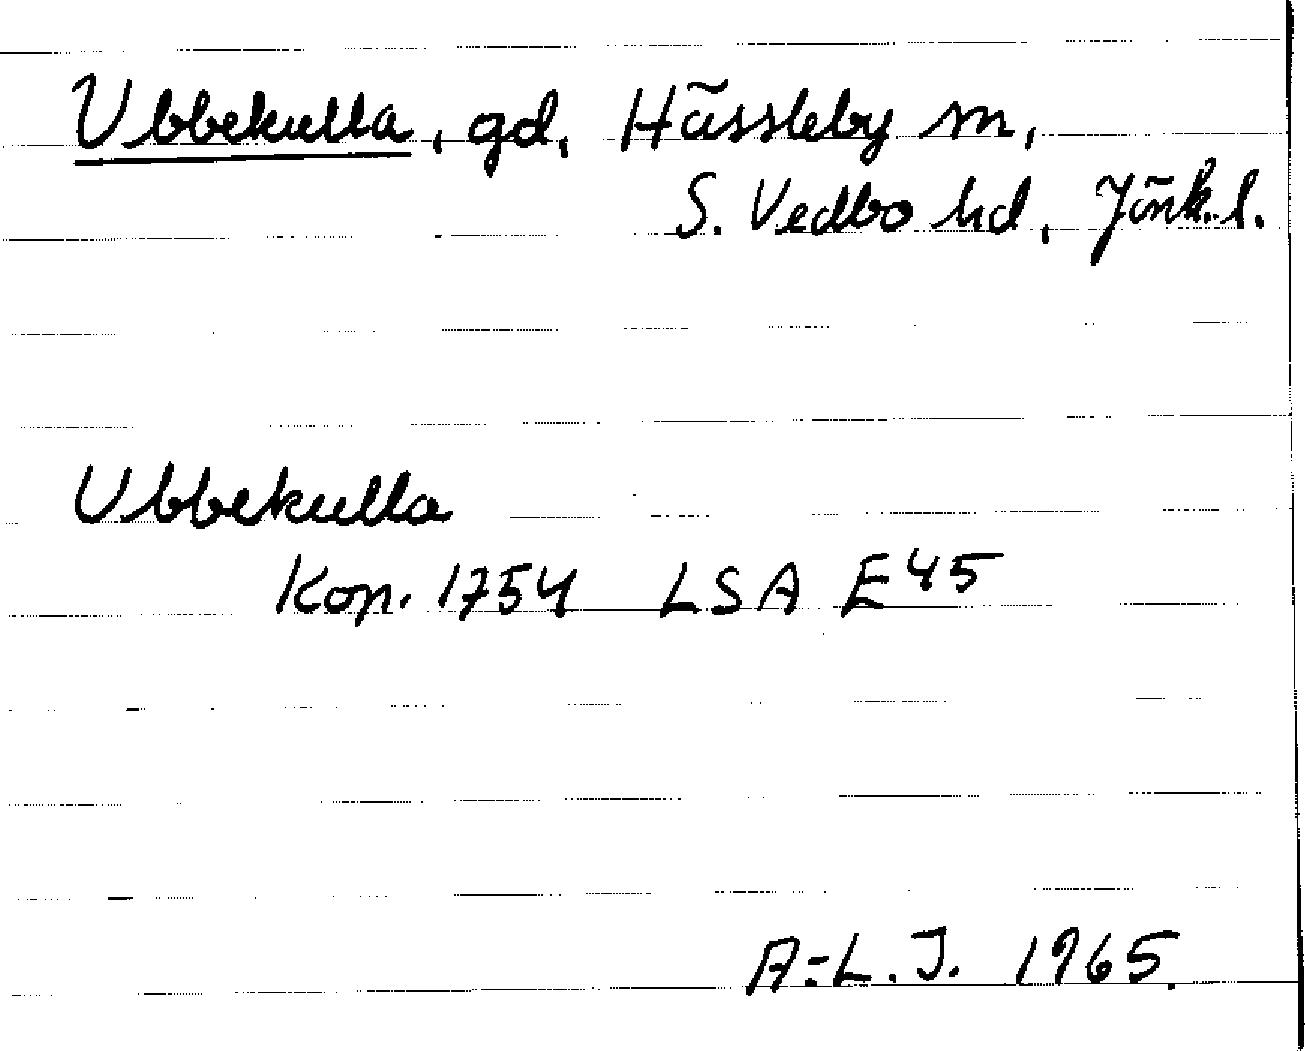 Ubbekulla, gd, Hässleby sn,
S. Vedbo hd, Jönk. l.
Ubbekulla
Kop. 1754 LSA E45
A-L. J. 1965.